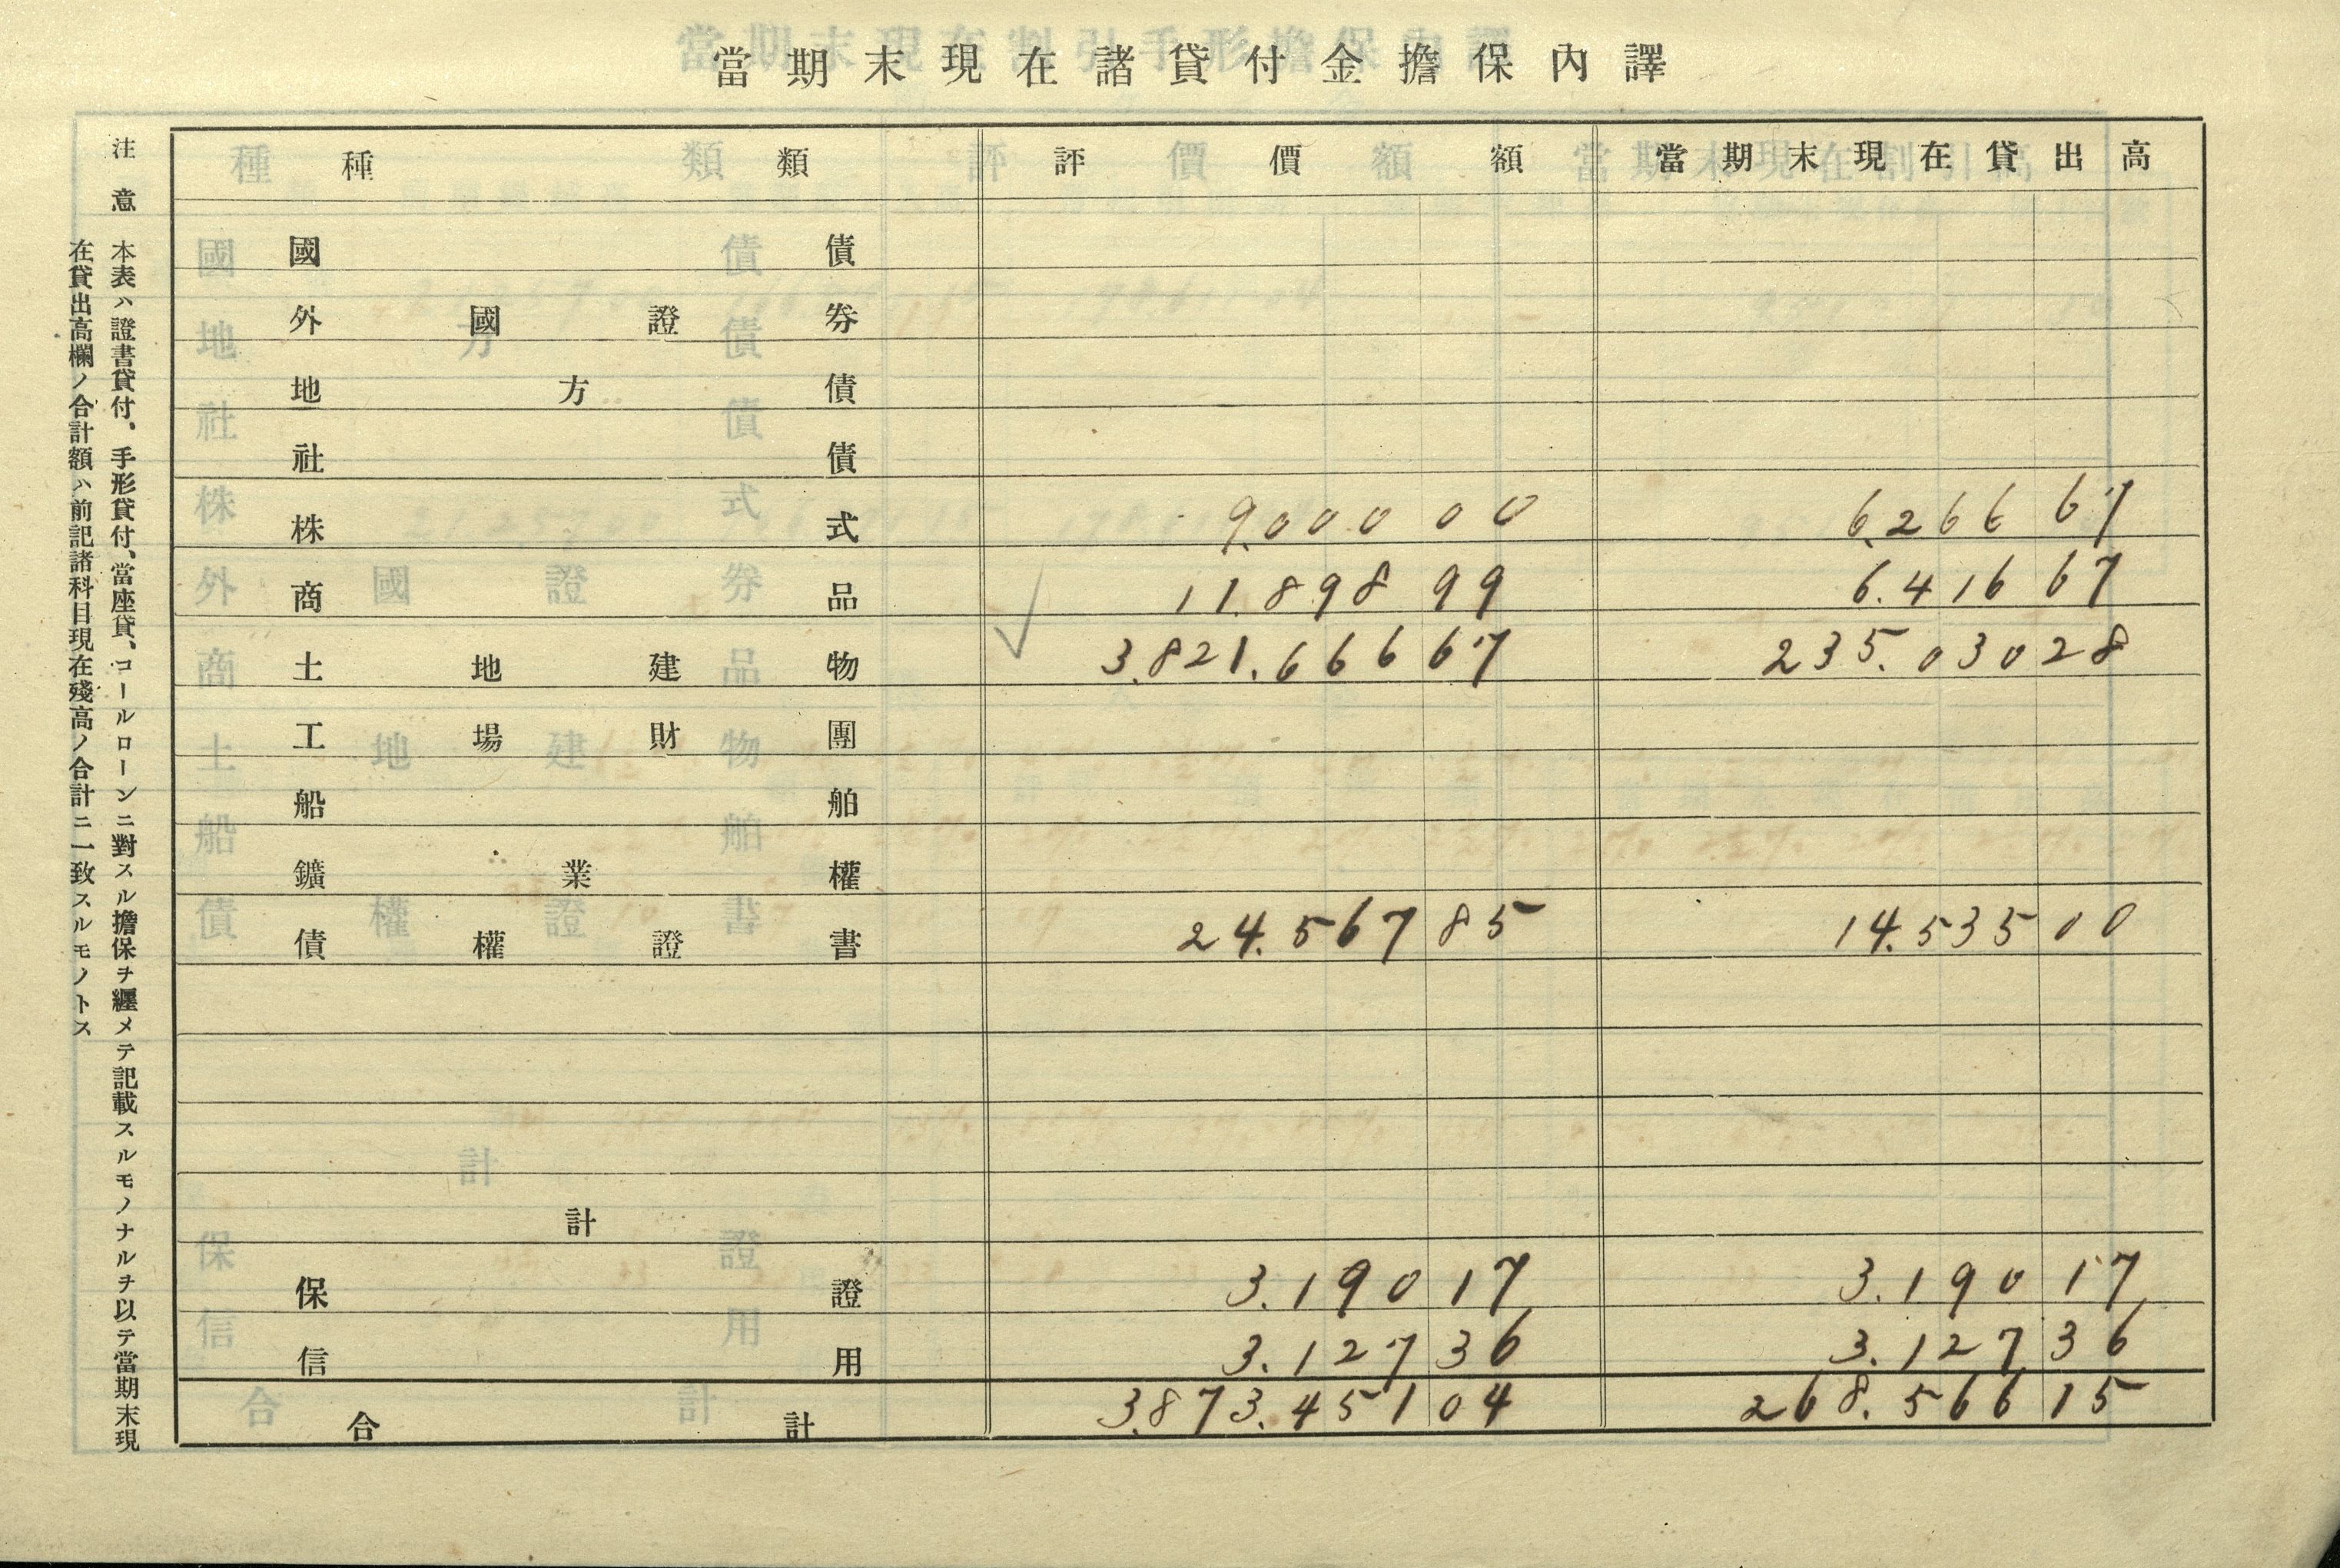 當期末現在諸貸付金擔保內譯
種類 評價價額 當期末現在貸出高
國債
外國證券
地方債
社債
株式 9.000 00 6.266 67
商品 11.898 99 6.416 67
土地建物 3.821.666 67 235.030 28
工場財團
船舶
鑛業權
債權證書 24.567 85 14.535 00
計
保證 3.190 17 3.190 17
信用 3.127 36 3.127 36
合計 3.873.451 04 268.566 15
注意 本表ハ證書貸付、手形貸付、當座貸、コールローンニ對スル擔保ヲ纒メテ記載スルモノナルヲ以テ當期末現
在貸出高欄ノ合計額ハ前記諸科目現在殘高ノ合計ニ一致スルモノトス